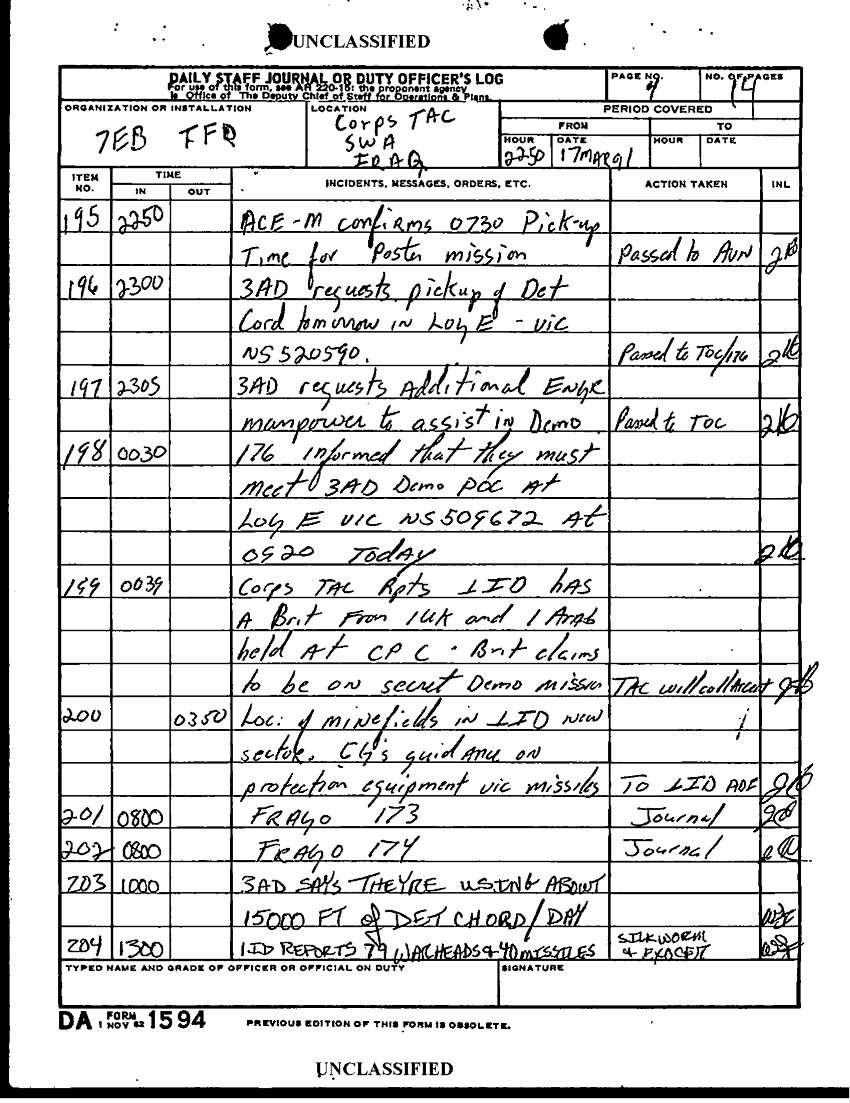 UNCLASSIFIED
DAILY STAFF JOURNAL OR DUTY OFFICER'S LOG
For use of this form, see AR 220-15; the proponent agency
is Office of The Deputy Chief of Staff for Operations & Plans.
PAGE NO.
4
NO. OF PAGES
14
ORGANIZATION OR INSTALLATION
7EB TFR
LOCATION
Corps TAC
SWA
IRAQ
PERIOD COVERED
FROM
TO
HOUR
2250
DATE
17MAR91
HOUR
DATE
ITEM NO.
TIME
IN
OUT
INCIDENTS, MESSAGES, ORDERS, ETC.
ACTION TAKEN
INL
195 2250 ACE-M confirms 0730 Pick-up
Time for Poster mission Passed to AVN
196 2300 3AD requests pickup of Det
Cord tomorrow in Log E - vic
NS520590. Passed to TOC/176
197 2305 3AD requests Additional ENGR
manpower to assist in Demo Passed to TOC
198 0030 176 informed that they must
meet 3AD Demo POC At
Log E vic NS509672 At
0920 Today
199 0039 Corps TAC Rpts 1ID hAS
A Brit From 1UK and 1 Arab
held At CP C. Brit claims
to be on secret Demo mission TAC will call
200 0350 Loc: of minefields in 1ID new
sector. CG's guidance on
protection equipment vic missiles TO 1ID ADE
201 0800 FRAGO 173 Journal
202 0800 FRAGO 174 Journal
203 1000 3AD SAYS THEY'RE USING ABOUT
15000 FT of DET CHORD/DAY
204 1300 1ID REPORTS 79 WARHEADS & 40 MISSILES SILKWORM
& EXOCET
TYPED NAME AND GRADE OF OFFICER OR OFFICIAL ON DUTY
SIGNATURE
DA FORM 1 NOV 62 1594
PREVIOUS EDITION OF THIS FORM IS OBSOLETE.
UNCLASSIFIED